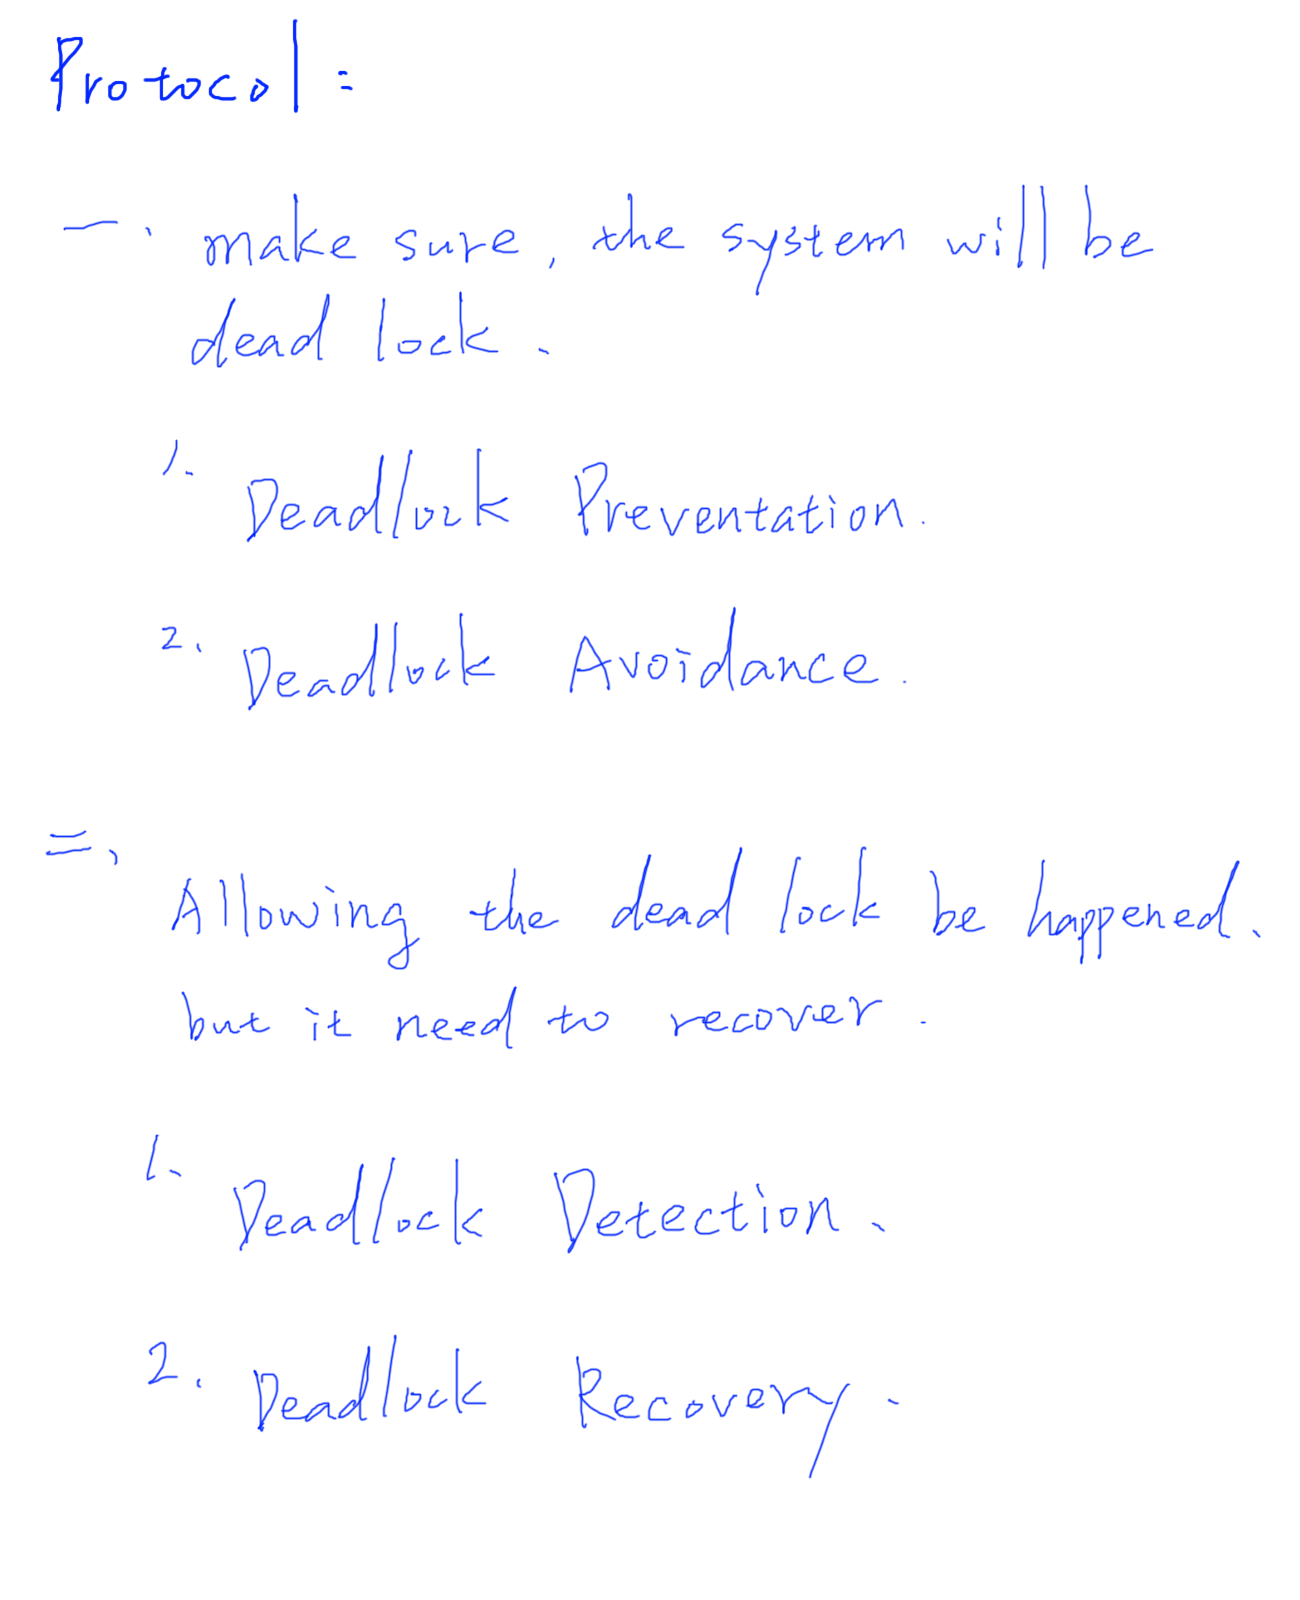 Protocol：
一、make sure, the system will be
dead lock.
1. Deadlock Preventation.
2. Deadlock Avoidance.
二、
Allowing the dead lock be happened.
but it need to recover.
1. Deadlock Detection.
2. Deadlock Recovery.